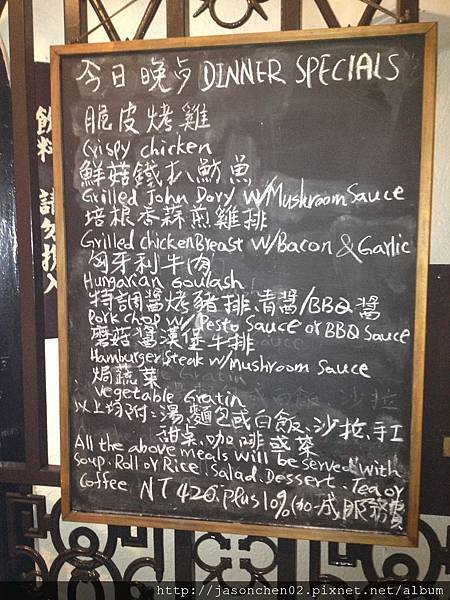 今日晚点 DINNER SPECIALS
脆皮烤雞
Crispy chicken
鮮菇鐵扒魴魚
Grilled John Dory w/Mushroom Sauce
培根香蒜煎雞排
Grilled chicken Breast w/Bacon & Garlic
匈牙利牛肉
Hungarian Goulash
特調醬烤豬排.青醬/BBQ醬
Pork chop w/ Pesto Sauce or BBQ Sauce
蘑菇醬漢堡牛排
Hamburger Steak w/mushroom Sauce
焗蔬菜
Vegetable Gratin
以上均附:湯.麵包或白飯.沙拉.手工
甜桌.咖啡或茶
All the above meals will be served with
Soup.Roll or Rice.Salad.Dessert.Tea or
Coffee NT 420.plus 10%(加一成服務費
飲料 請勿攜入
http://jasonchen02.pixnet.net/album